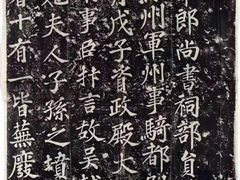 郎尚書祠部員
州軍州事騎都尉
戊子資政殿大
事臣抃言故吳越
妃夫人子孫之墳
者十有一皆蕪廢